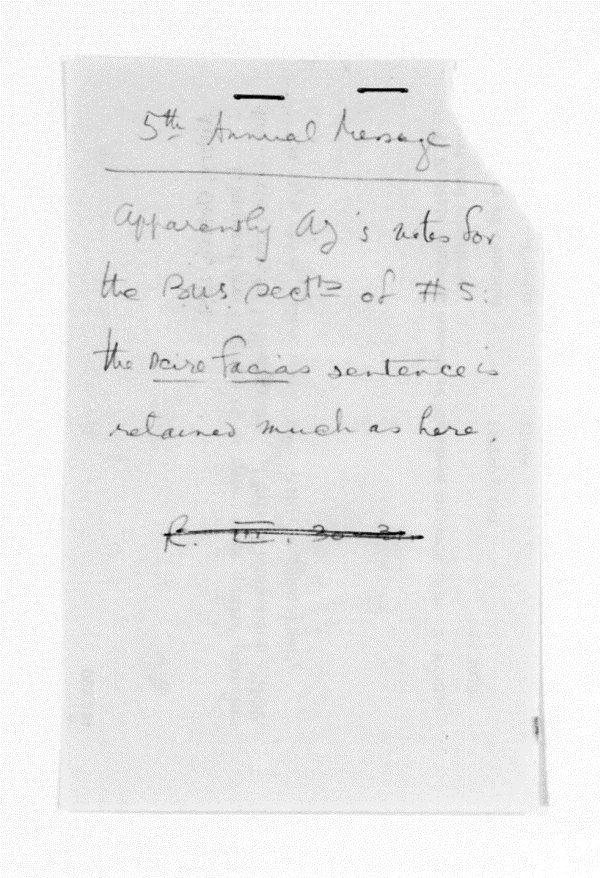 5th Annual Message
Apparently AJ's notes for
the Bus section of #5:
the scire facias sentence is
retained much as here.
R. III. 30-31.